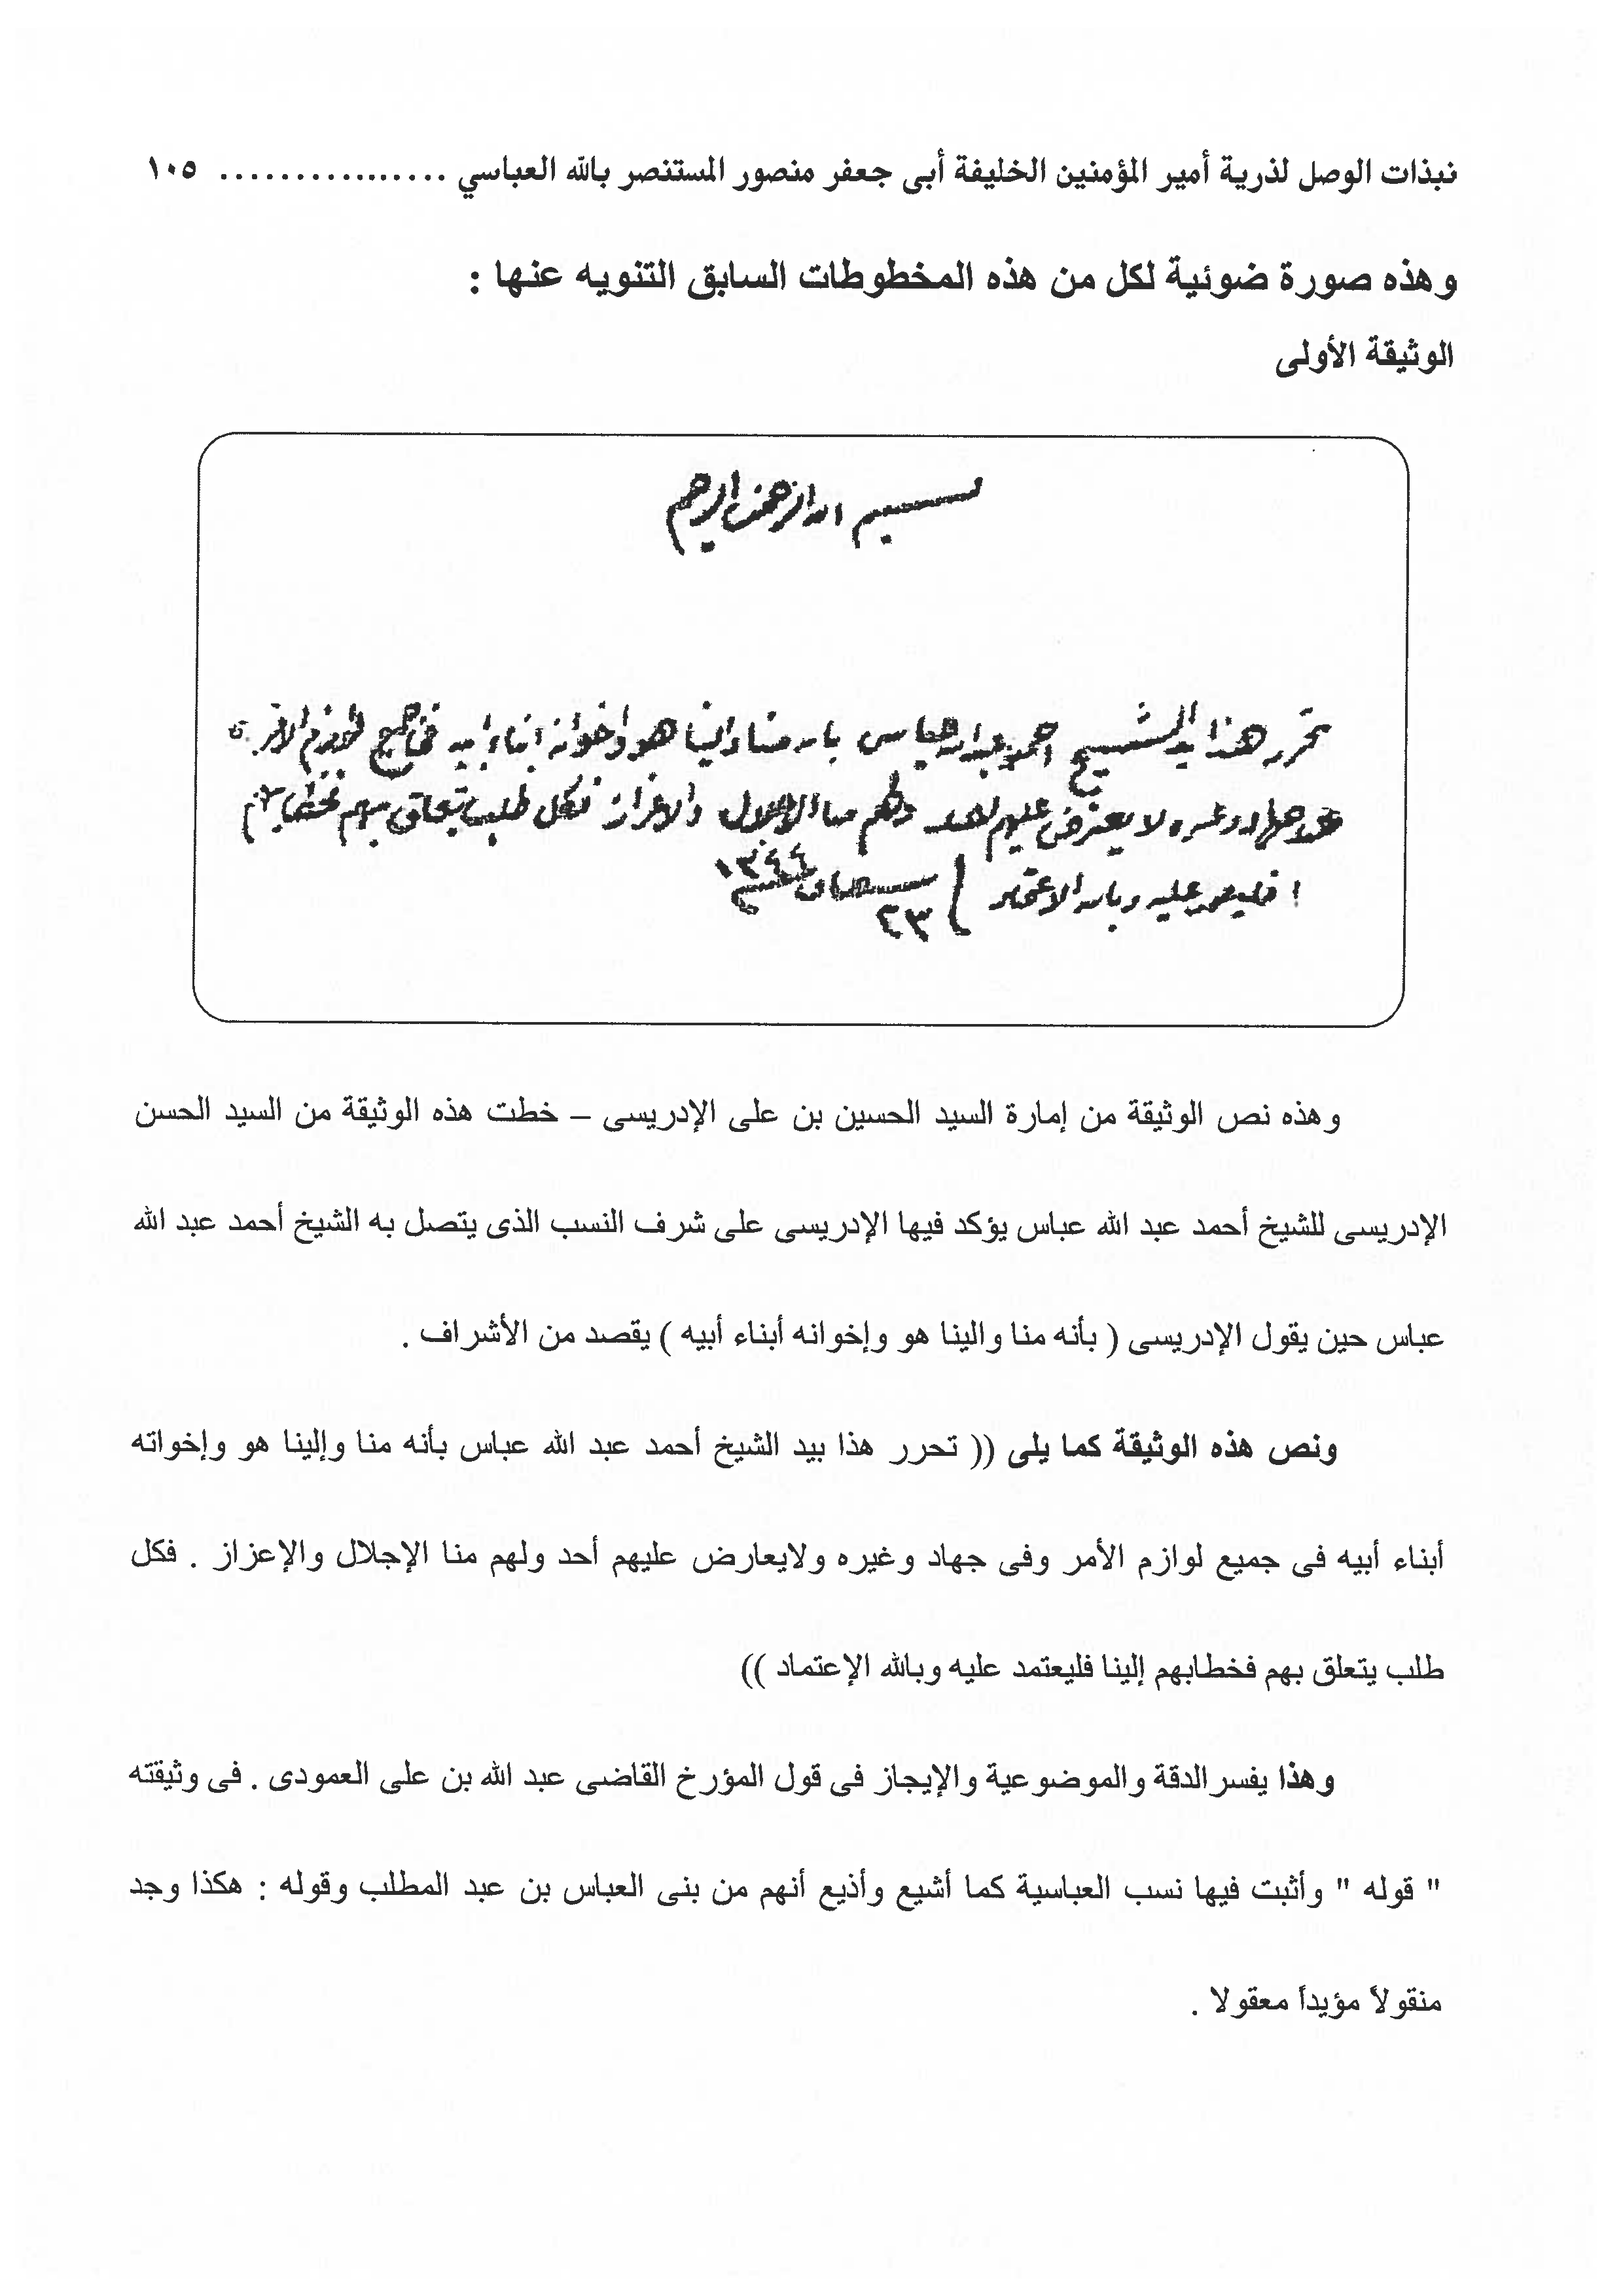 نبذات الوصل لذرية أمير المؤمنين الخليفة أبى جعفر منصور المستنصر بالله العباسي ................ ١٠٥
وهذه صورة ضوئية لكل من هذه المخطوطات السابق التنويه عنها :
الوثيقة الأولى
بسم الله الرحمن الرحيم
تحرر هذا بيد الشيخ احمد عبدالله عباس بانه منا والينا هو وأخوانه ابناء ابيه في جميع لوازم الامر
جهاد وغيره لا يعترض عليهم احد ولهم منا الاجلال والاعزاز فكل طلب يتعلق بهم فخطابهم
فليعتمد عليه وبالله الاعتماد
٢٣ شعبان ١٣٤٤
وهذه نص الوثيقة من إمارة السيد الحسين بن على الإدريسى – خطت هذه الوثيقة من السيد الحسن
الإدريسى للشيخ أحمد عبد الله عباس يؤكد فيها الإدريسى على شرف النسب الذى يتصل به الشيخ أحمد عبد الله
عباس حين يقول الإدريسى ( بأنه منا والينا هو وإخوانه أبناء أبيه ) يقصد من الأشراف .
ونص هذه الوثيقة كما يلى (( تحرر هذا بيد الشيخ أحمد عبد الله عباس بأنه منا وإلينا هو وإخواته
أبناء أبيه فى جميع لوازم الأمر وفى جهاد وغيره ولايعارض عليهم أحد ولهم منا الإجلال والإعزاز . فكل
طلب يتعلق بهم فخطابهم إلينا فليعتمد عليه وبالله الإعتماد ))
وهذا يفسر الدقة والموضوعية والإيجاز فى قول المؤرخ القاضى عبد الله بن على العمودى . فى وثيقته
" قوله " وأثبت فيها نسب العباسية كما أشيع وأذيع أنهم من بنى العباس بن عبد المطلب وقوله : هكذا وجد
منقولاً مؤيداً معقولا .